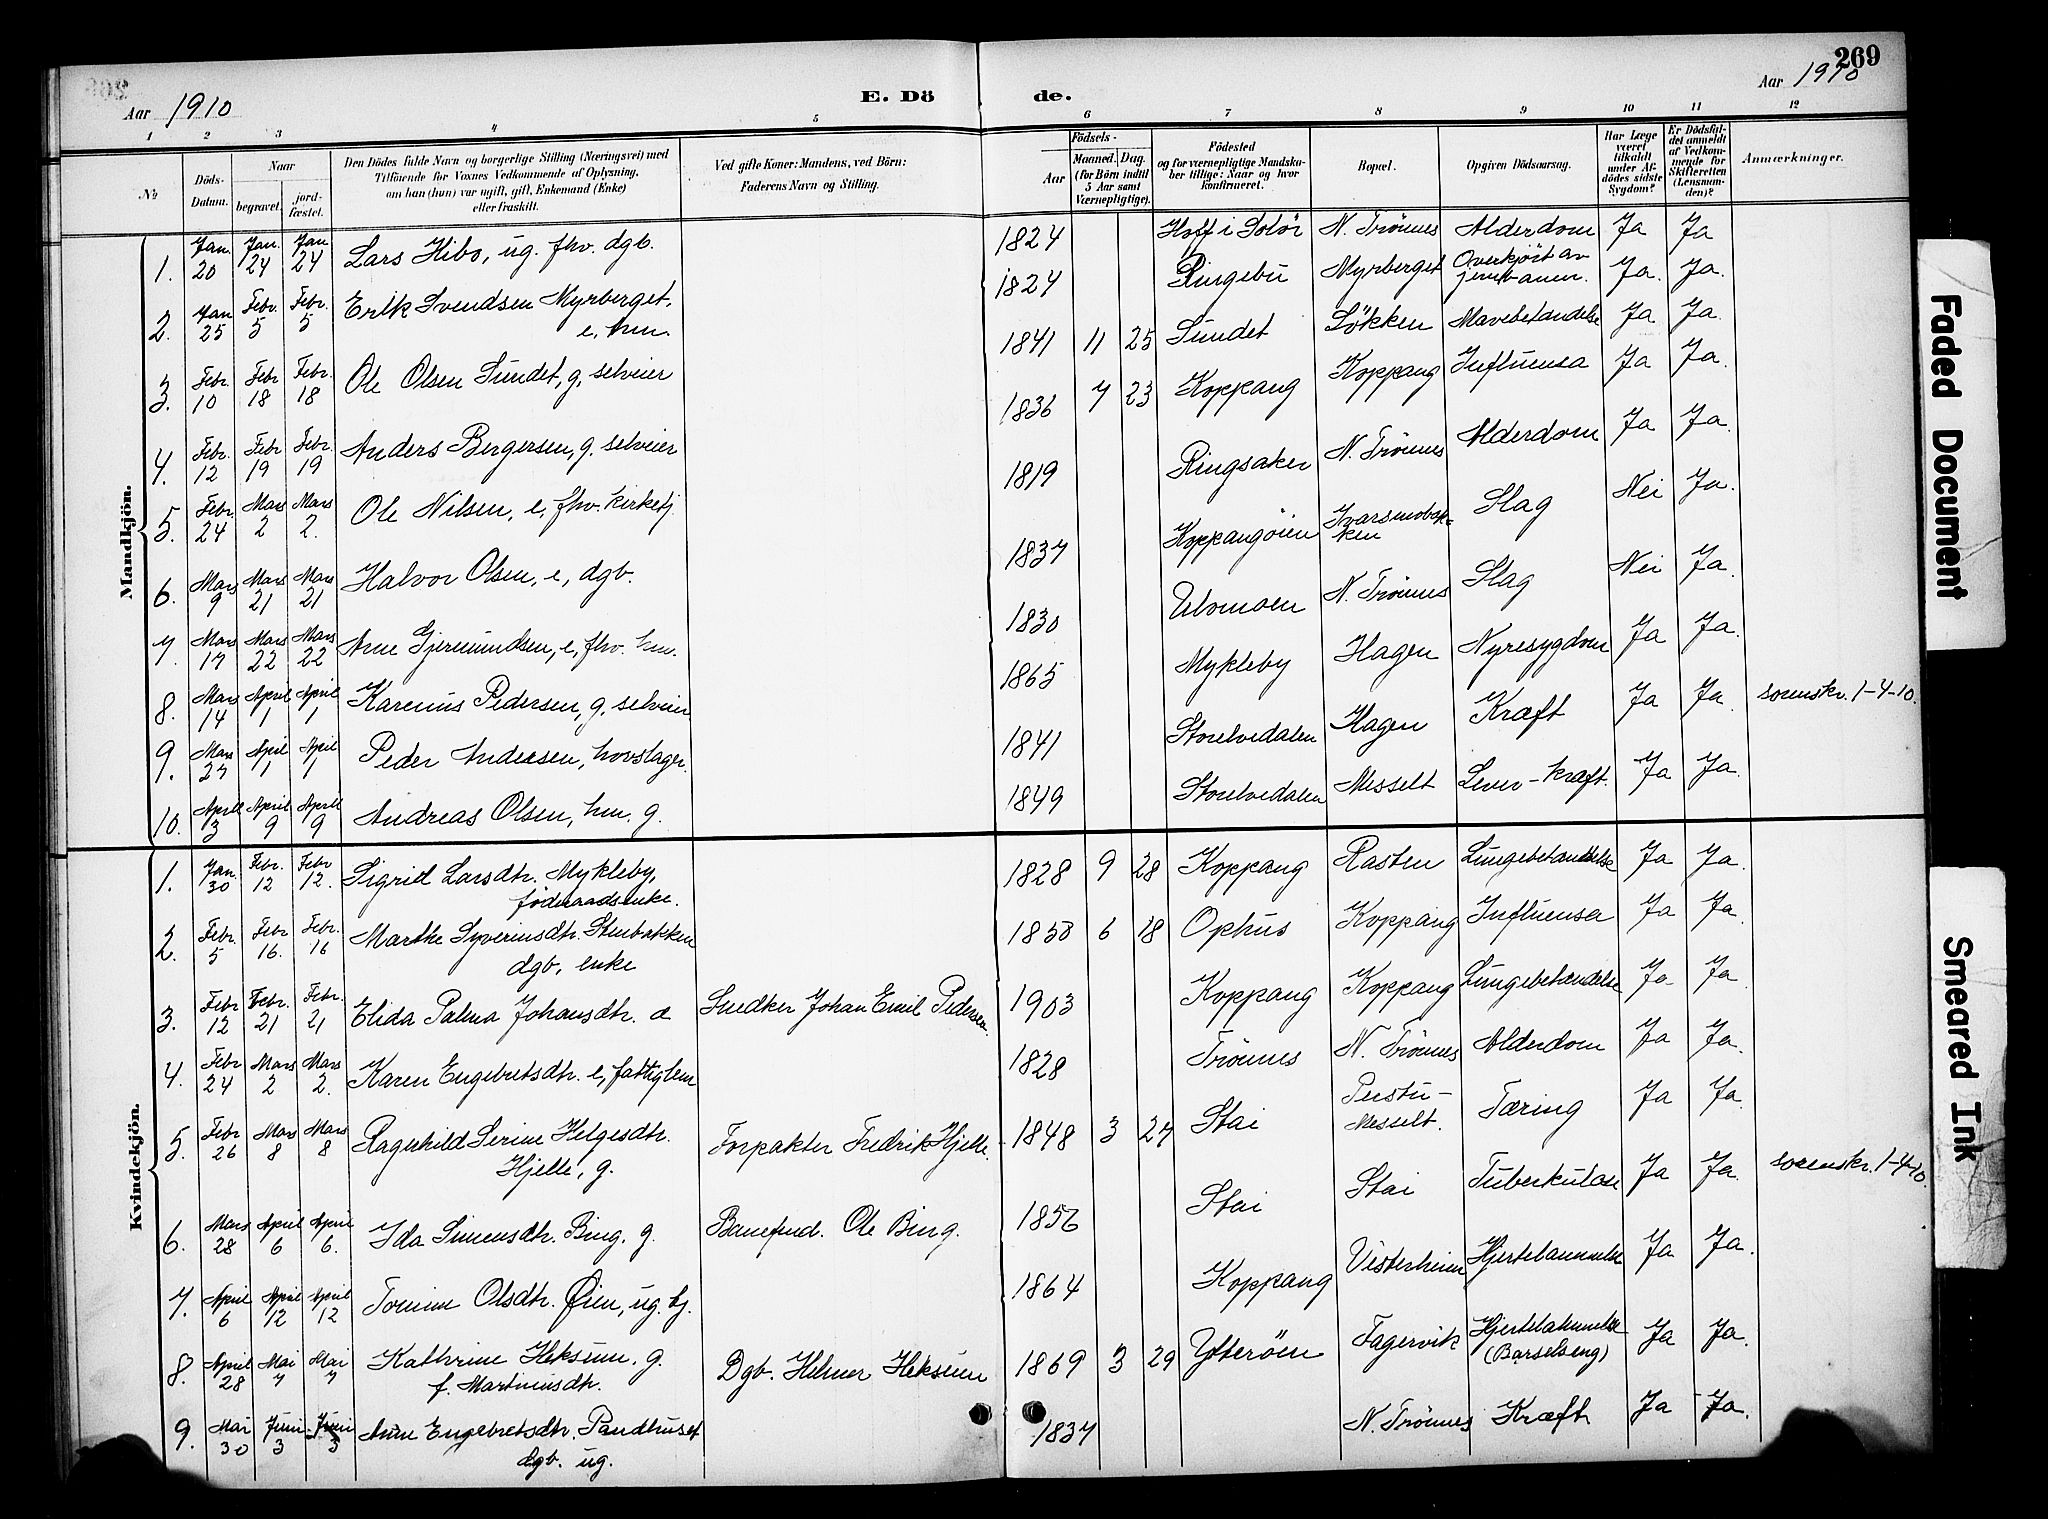 269
Aar 1910
E. Dö de.
Aar 1910
1 2 3 4 5 6 7 8 9 10 11 12
№
Döds-Datum.
Naar
begravet.
jord-fæstet.
Den Dödes fulde Navn og borgerlige Stilling (Næringsvei) med
Tilföiende for Voxnes Vedkommende af Oplysning,
om han (hun) var ugift, gift, Enkemand (Enke)
eller fraskilt.
Ved gifte Koner: Mandens, ved Börn:
Faderens Navn og Stilling.
Födsels-
Aar
Maaned. Dag.
(for Börn indtil
5 Aar samt
Værnepligtige).
Födested
og for værnepligtige Mandska-
ber tillige: Naar og hvor
konfirmeret.
Bopæl.
Opgiven Dödsaarsag.
Har Læge
været
tilkaldt
under Af-
dödes sidste
Sygdom?
Er Dödsfal-
det anmeldt
af Vedkom-
mende for
Skifteretten
(Lensman-
den)?
Anmærkninger.
Mandkjön.
1. Jan. 20 Jan. 24 Jan 24 Lars Hibo, ug. fhv. dgb. 1824 Hoff i Solör N. Trönnes Alderdom Ja Ja
2. Jan 25 Febr. 5 Febr. 5 Erik Svendsen Myrberget, e, hm. 1824 Ringebu Myrberget Overkjört av jernbanen. Ja. Ja.
3. Febr. 10 Febr 18 Febr. 18 Ole Olsen Sundet, g, selveier 1841 11 25 Sundet Lökken Mavebetændelse Ja Ja.
4. Febr. 12 Febr 19 Febr. 19 Anders Bergersen, g. selveier 1836 7 23 Koppang Koppang Influensa Ja Ja.
5. Febr. 24 Mars 2 Mars 2. Ole Nilsen, e, fhv. kirketj. 1819 Ringsaker N. Trönnes Alderdom Ja Ja.
6. Mars 9 Mars 21 Mars 21 Halvor Olsen, e, dgb. 1837 Koppangöien Ivarsendbak-ken Slag Nei Ja.
7. Mars 17 Mars 22 Mars 22 Arne Gjermundsen, e, fhv. hm. 1830 Ulvmoen N. Trönnes Slag Nei Ja.
8. Mars 14 April 1 April 1 Karenius Pedersen, g, selveier 1865 Mykleby Hagen Nyresygdom Ja Ja.
9. Mars 27 April 1 April 1 Peder Andersen, hovslager. 1841 Storelvedalen Hagen Kræft Ja Ja. sorenskr. 1-4-10.
10. April 3 April 9 April 9 Andreas Olsen, hm. g. 1849 Storelvedalen Messelt Lever-kræft. Ja Ja.
Kvindekjön.
1. Jan. 30 Febr. 12 Febr 12. Sigrid Larsdtr. Mykleby, föderaadsenke. 1828 9 28 Koppang Rasten Lungebetændelse Ja Ja.
2. Febr. 5 Febr 16. Febr. 16 Marthe Syverinsdtr. Stenbakken dgb, enke 1850 6 18 Ophus Koppang Influensa Ja Ja.
3. Febr 12 Febr. 21 Febr. 21 Elida Palma Johansdtr. Snedker Johan Emil Pedersen 1903 Koppang Koppang Lungebetændelse Ja Ja.
4. Febr 24 Mars 2 Mars 2. Karen Engebretsdtr. e, fattiglem 1828 Trönnes N. Trönnes Alderdom Ja Ja.
5. Febr 26 Mars 8 Mars 8 Ragnhild Serine Helgesdtr. Hjelle, g. Forpakter Fredrik Hjelle. 1848 3 27 Stai Prestu-Messelt. Tæring Ja Ja.
6. Mars 28 April 6 April 6. Ida Simensdtr. Bing, g. Banefmd. Ole Bing. 1856 Stai Stai Tuberkulose Ja Ja. sorenskr. 1-4-10.
7. April 6 April 12 April 12 Tomine Olsdtr. Öien, ug. tj. 1864 Koppang Vesterheim Hjertelammelse Ja Ja.
8. April 28 Mai 7 Mai 7 Kathrine Heksum, g. f. Martinusdtr. Dgb. Helmer Heksum 1869 3 29 Ytteröen Fagervik Hjertelammelse (Barselseng) Ja Ja.
9. Mai 30 Juni 3 Juni 3 Anne Engebretsdtr. Sandhuset dgb. ug. 1837 N. Trönnes Kræft Ja Ja.
Faded Document
Smeared Ink